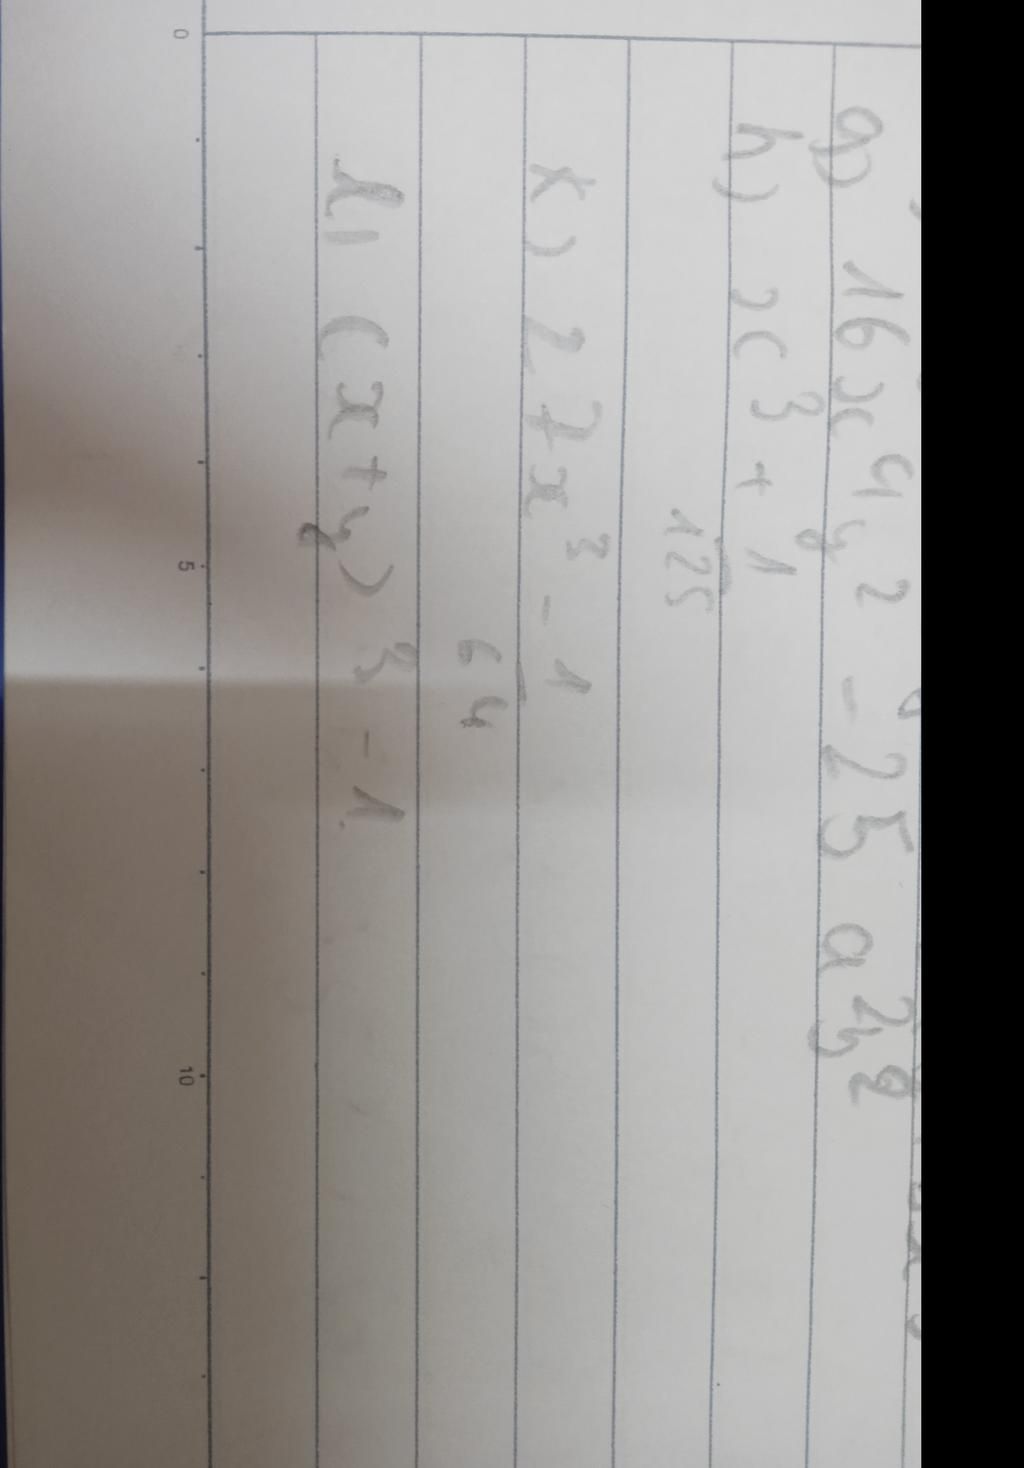 g) 16x4y2 - 25 a2y2
h) x3 + 1
125
k) 27x3 - 1
64
l) (x+y)3 - 1
0 5 10